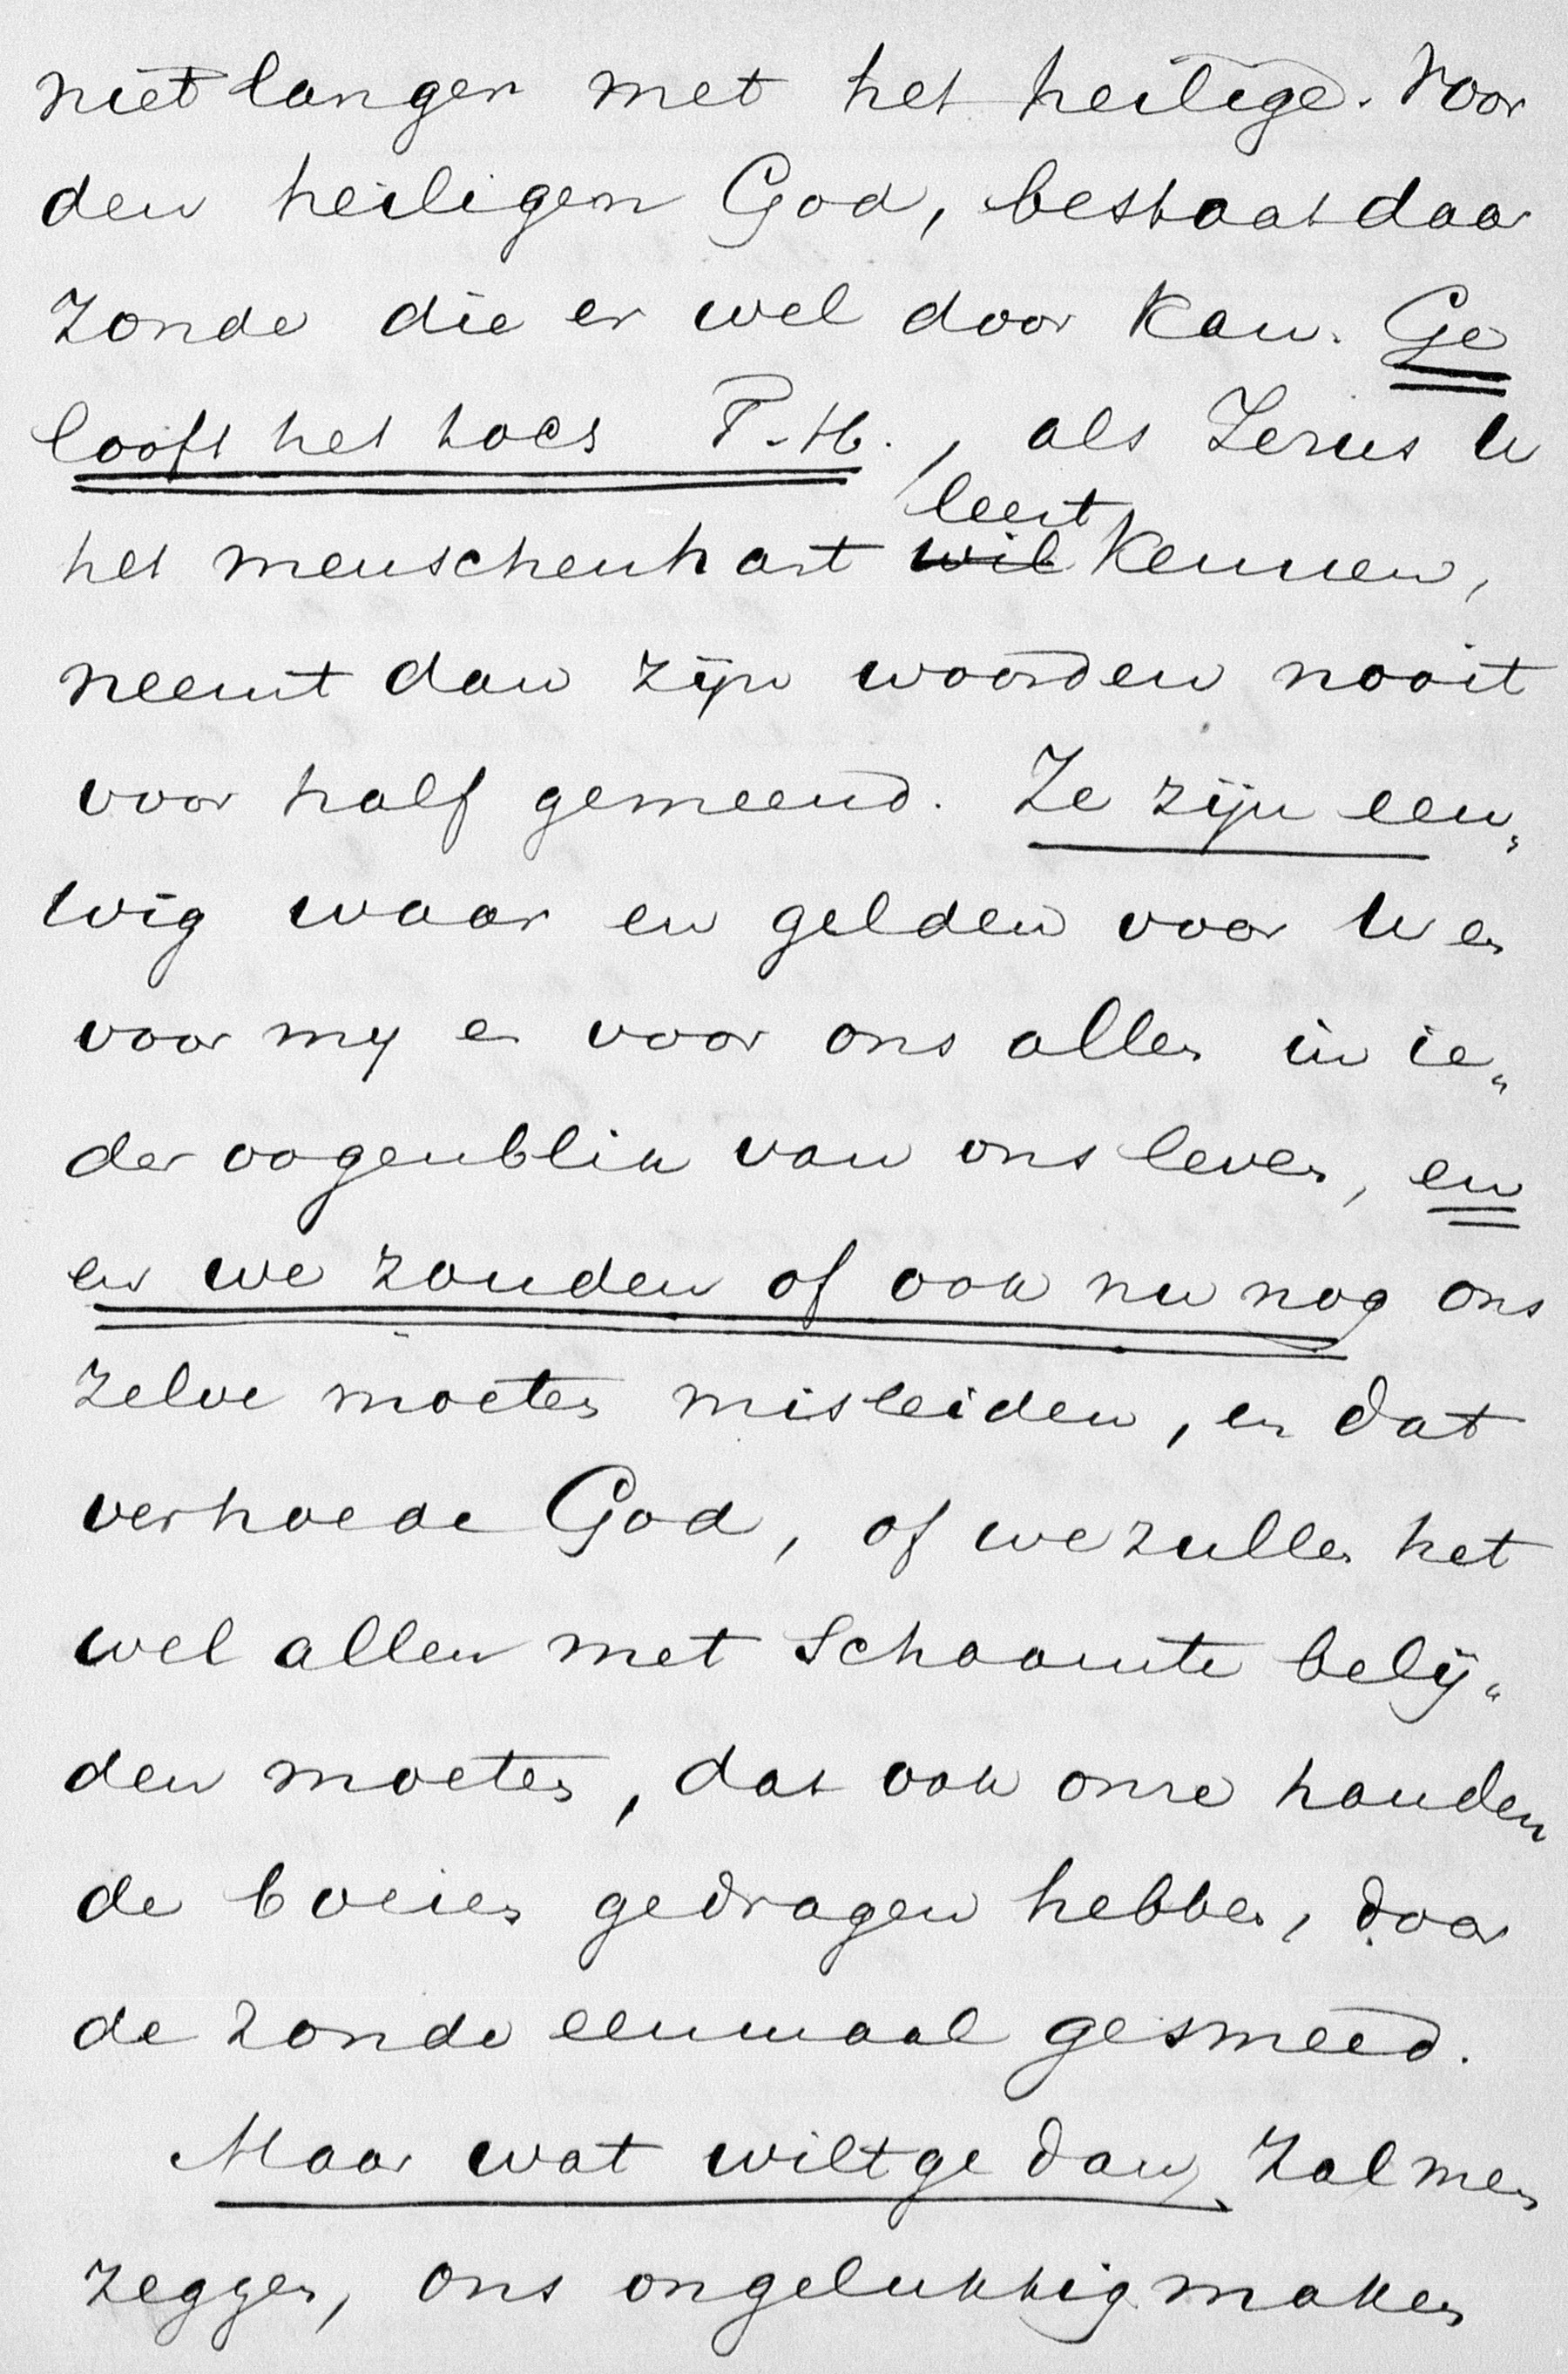 niet langer met het heilige. Voor
den heiligen God, bestaat daar
zonde die er wel door kan. Ge
looft het toch T. H., als Jezus U
het menschenhart leert kennen,
neemt dan zijn woorden nooit
voor half gemeend. Ze zijn eeu„
wig waar en gelden voor U en
voor my en voor ons allen in ie„
der oogenblik van ons leven, en
en we zouden of ook nu nog ons
zelve moeten misleiden, en dat
verhoede God, of we zullen het
wel allen met schaamte belij„
den moeten, dat ook onze handen
de boeien gedragen hebben, door
de zonde eenmaal gesmeed.
Maar wat wilt ge dan, zal men
zeggen, ons ongelukkig maken